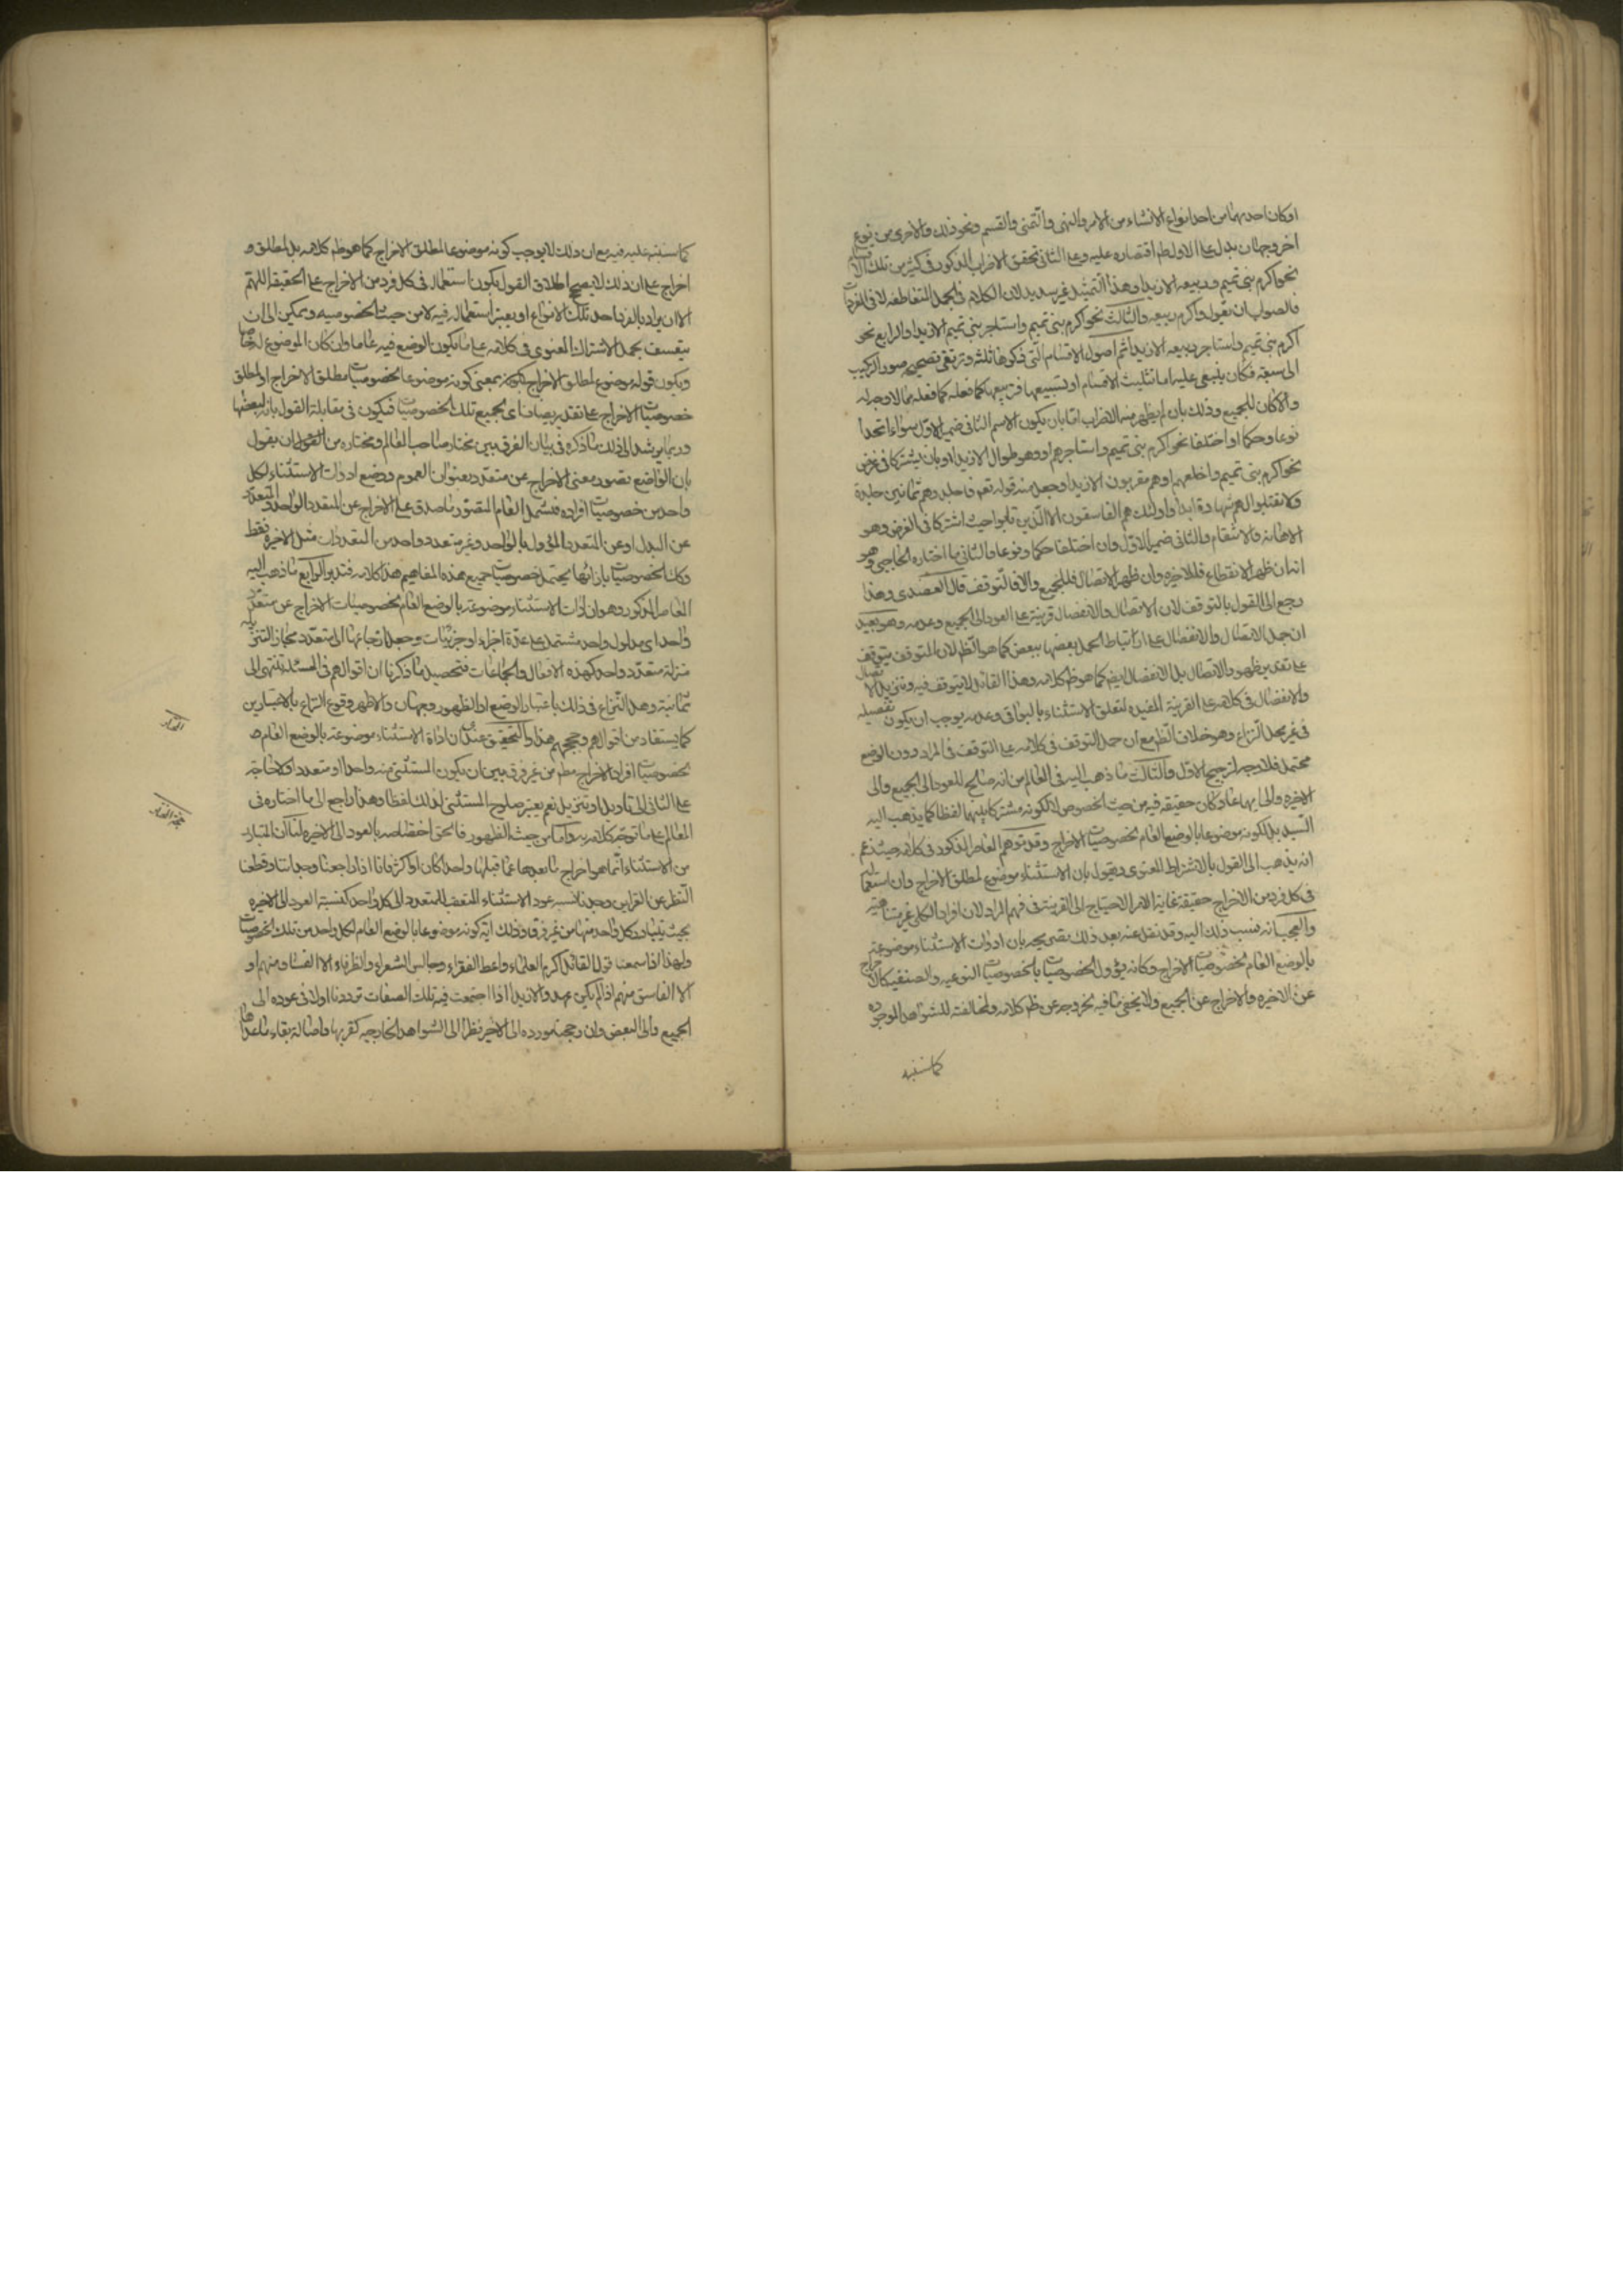 او كان احديهما من احد انواع الانشاء من الامر والنهى والتمنى والقسم ونحو ذلك والاخرى من نوع
اخر وجهان يدل على الاول ظم اقتصاره عليه وعلى الثانى تحقق الاضراب المذكور فى كثير من تلك الاقسام
نحو اكرم بنى تميم وربيعه الا زيدا وهذا التمثيل غير سديد لان الكلام فى الجمل المتعاطفه لا فى المفردات
فالصواب ان تقول واكرم ربيعه والثالث نحو اكرم بنى تميم واستاجر بنى تميم الا زيدا والرابع نحو
اكرم بنى تميم واستاجر ربيعه الا زيدا ثم اصول الاقسام التى ذكرها ثلثه وترتقى صور التركيب
الى سبعة فكان ينبغى عليه اما تثليث الاقسام او تسبيعها فتربيعها كما فعله مما لا وجه له
والا كان للجميع وذلك بان لم يظهر منه الاضراب اما بان يكون الاسم الثانى ضمير الاول سواء اتحدا
نوعا وحكما او اختلفا نحو اكرم بنى تميم واستاجرهم او وهم طوال الا زيدا او بان يشتركا فى غرض
نحو اكرم بنى تميم واخلعهم او هم مقربون الا زيدا وجعل منه قوله تعم فاجلدوهم ثمانين جلدة
ولا تقبلوا لهم شهادة ابدا واولئك هم الفاسقون الا الذين تابوا حيث اشتركا فى الغرض وهو
الاهانه والانتقام والثانى ضمير الاول وان اختلفا حكما ونوعا والثانى ما اختاره الحاجبى وهو
انه ان ظهر الانقطاع فللاخيره وان ظهر الاتصال فللجميع والا فالتوقف قال العضدى وهذا
رجع الى القول بالتوقف لان الاتصال والانفصال قرينة على العود الى الجميع وعدمه وهو بعيد
ان جعل الاتصال والانفصال على ارتباط الجمل بعضها ببعض كما هو الظ لان المتوقف يتوقف
على تقدير ظهور الاتصال بل الانفصال ايض كما هو ظ كلامه وهذا القائل لا يتوقف فيه وتنزيل الاتصال
والانفصال فى كلامه على القرينة المفيده لتعلق الاستثناء بالبواقى وعدمه يوجب ان يكون تفصيله
فى غير محل النزاع وهو خلاف الظ مع ان حمل التوقف فى كلامه على التوقف فى المراد دون الوضع
محتمل فلا وجه لترجيح الاول والثالث ما ذهب اليه فى المعالم من انه صالح للعود الى الجميع والى
الاخيره والى ايهما عاد كان حقيقه فيه من حيث الخصوص لا لكونه مشتركا بينهما لفظا كما يذهب اليه
السيد بل لكونه موضوعا بالوضع العام لخصوصيات الاخراج وقد توهم المعاصر المذكور فى كلامه حيث زعم
انه يذهب الى القول بالاشتراك المعنوى ويقول بان الاستثناء موضوع لمطلق الاخراج وان استعماله
فى كل فرد من الاخراج حقيقة غاية الامر الاحتياج الى القرينة فى فهم المراد لان افراد الكلى غير متناهية
والعجب انه نسب ذلك اليه وقد نقل عنه بعد ذلك تصريحه بان ادوات الاستثناء موضوعة
بالوضع العام لخصوصيات الاخراج وكانه يؤول الخصوصيات بالخصوصيات النوعيه والصنفيه كالاخراج
عن الاخيره والاخراج عن الجميع ولا يخفى ما فيه لخروجه عن ظ كلامه ولمخالفته للشواهد الموجوده
كما سننبه
كما سننبه عليه فيه مع ان ذلك لا يوجب كونه موضوعا لمطلق الاخراج كما هو ظ كلامه بل لمطلق و
اخراج على ان ذلك لا يصحح اطلاق القول بكون استعمال فى كل فرد من الاخراج على الحقيقة اللهم
الا ان يراد بالفرد احد تلك الانواع او يعتبر استعماله فيه لا من حيث الخصوصيه ويمكن الى ان
يتعسف بحمل الاشتراك المعنوى فى كلامه على ما يكون الوضع فيه عاما وان كان الموضوع له خاصا
ويكون قوله موضوع لمطلق الاخراج بمعنى كونه موضوعا لخصوصيات مطلق الاخراج او لمطلق
خصوصيات الاخراج على تقدير مضاف اى لجميع تلك الخصوصيات فيكون فى مقابلة القول بانه لبعضها
وربما يرشد الى ذلك ما ذكره فى بيان الفرق بين مختار صاحب المعالم ومختاره من القول ان يقول
بان الواضع تصور معنى الاخراج عن متعدد بعنوان العموم ووضع ادوات الاستثناء لكل
واحد من خصوصيات افراده فيشمل العام المتصور ما صدق على الاخراج عن المتعدد الواحد والمتعدد
عن البدل او عن المتعدد المؤول بالواحد وغير متعدد وواحد من المتعددات مثل الاخيره فقط
وكك الخصوصيات بازائها يحتمل خصوصيات جميع هذه المفاهيم هذا كلامه فتدبر الرابع ما ذهب اليه
المعاصر المذكور وهو ان ادات الاستثناء موضوعة بالوضع العام لخصوصيات الاخراج عن متعدد
واحد اى مدلول واحد مشتمل على عدة اجزاء او جزئيات وجعل ارجاعها الى متعدد مجاز التنزيله
منزلة متعدد واحد كهذه الافعال والجماعات فتحصيل ما ذكرنا ان اقوالهم فى المسئلة تنتهى الى
ثمانية وهل النزاع فى ذلك باعتبار الوضع او الظهور وجهان والاظهر وقوع النزاع بالاعتبارين
كما يستفاد من اقوالهم وحججهم هذا والتحقيق عندى ان اداة الاستثناء موضوعة بالوضع العام
لخصوصيات افراد الاخراج مطم من غير فرق بين ان يكون المستثنى منه واحدا او متعددا ولا حاجة
على الثانى الى تاويل او تنزيل نعم يعتبر صلوح المستثنى لذلك لفظا وهذا راجع الى ما اختاره فى
المعالم على ما توجه كلامه به واما من حيث الظهور فالحق اختصاصه بالعود الى الاخيره لنا ان المتبادر
من الاستثناء انما هو اخراج ما بعدها عما قبلها واحدا كان او اكثر فانا اذا راجعنا وجداننا وقطعنا
النظر عن القراين وجدنا نسبه عود الاستثناء المتعقب للمتعدد الى كل واحد كنسبة العود الى الاخيره
بحيث يتبادر كل واحد منها من غير فرق وذلك اية كونه موضوعا بالوضع العام لكل واحد من تلك الخصوصيات
ولهذا اذا سمعنا قول القائل اكرم العلماء واعط الفقراء وجالس الشعراء والظرفاء الا الفساق منهم او
الا الفاسق منهم اذا لم يكن عهد والا زيدا اذا اجتمعت فيه تلك الصفات ترددنا اولا فى عوده الى
الجميع والى البعض وان رجحنا عوده الى الاخير نظرا الى الشواهد الخارجيه كقربها واصالة بقاء ما عداها
المختار
حجة المختار